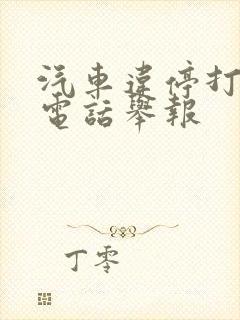 汽車違停打
電話舉報
丁零